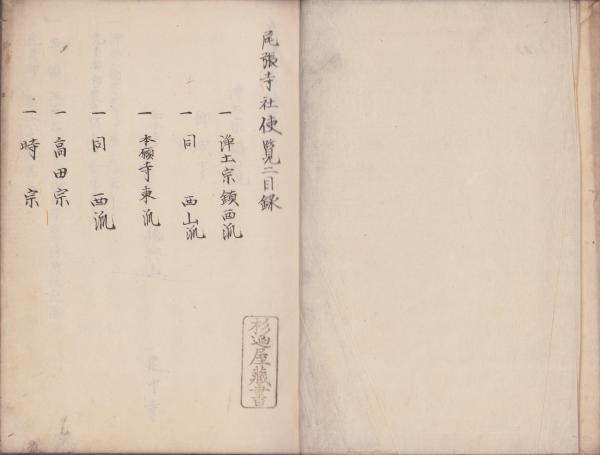 尾張寺社使覧二目録
一 浄土宗鎮西流
一 同 西山流
一 本願寺東流
一 同 西流
一 高田宗
一 時宗
杉廼屋蔵書